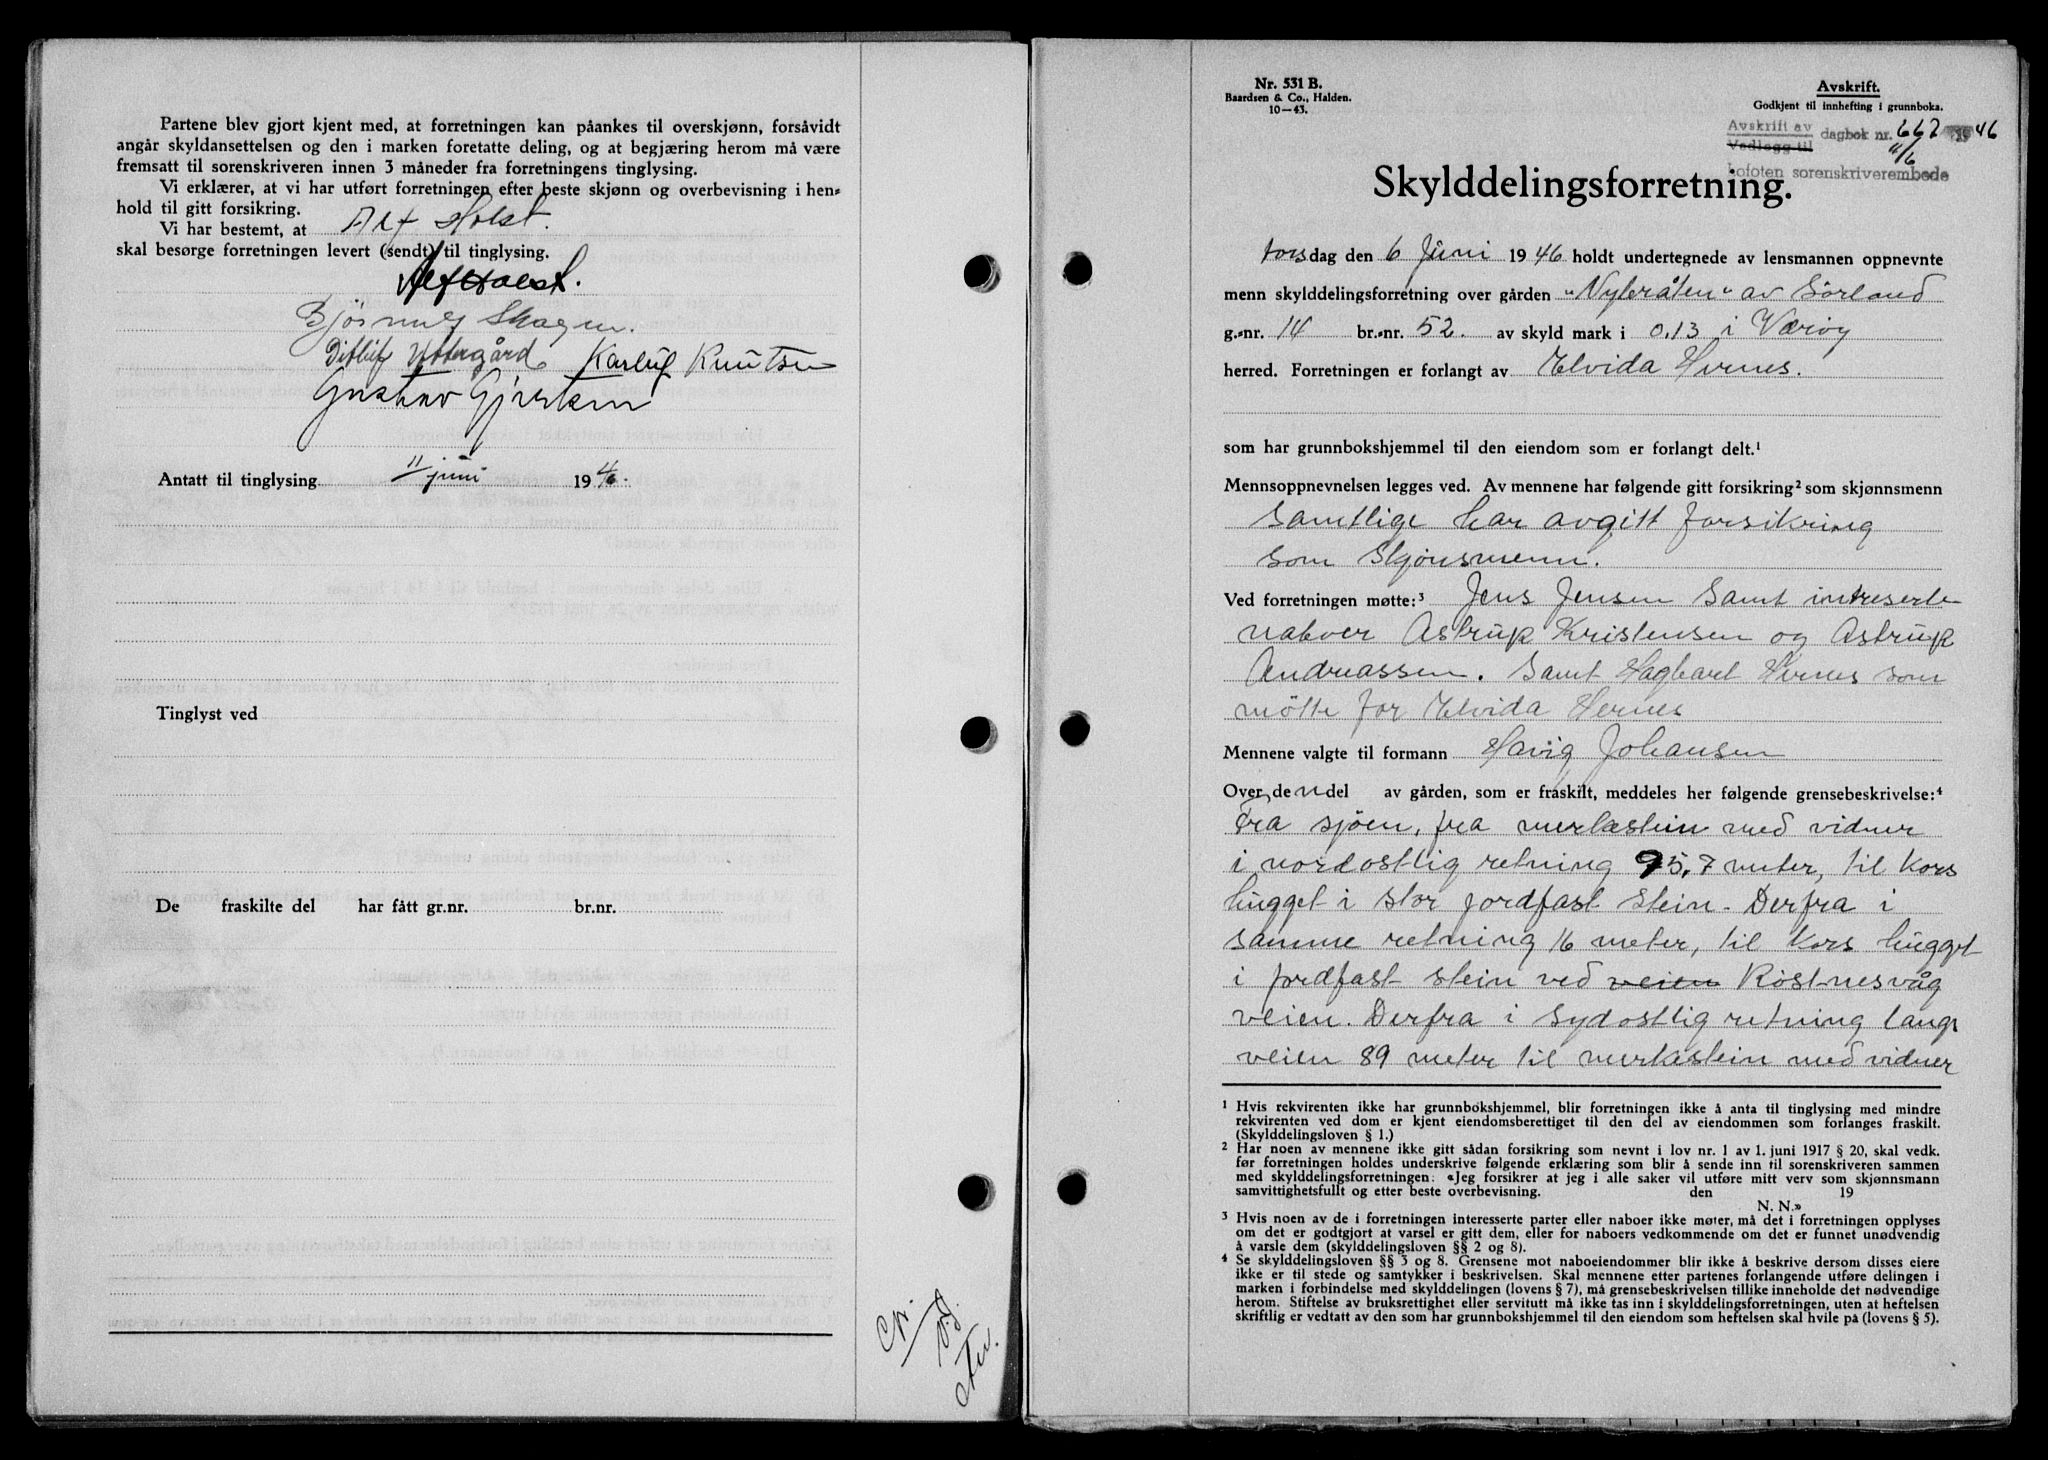 Partene blev gjort kjent med, at forretningen kan påankes til overskjønn, forsåvidt
angår skyldansettelsen og den i marken foretatte deling, og at begjæring herom må være
fremsatt til sorenskriveren innen 3 måneder fra forretningens tinglysing.
Vi erklærer, at vi har utført forretningen efter beste skjønn og overbevisning i hen-
hold til gitt forsikring.
Vi har bestemt, at Alf Holst.
skal besørge forretningen levert (sendt) til tinglysing.
Alf Holst.
Skagen.
Ditlef Yttergård Karluf Knutsen
Gustav
Antatt til tinglysing 11 juni 1946.
Tinglyst ved
De fraskilte del har fått gr.nr. br.nr.
Nr. 531 B.
Baardsen & Co., Halden.
10—43.
Avskrift.
Godkjent til innhefting i grunnboka.
Avskrift av
Vedlegg til
dagbok nr. 667 1946
11/6
Lofoten sorenskriverembede
Skylddelingsforretning.
torsdag den 6 Juni 1946 holdt undertegnede av lensmannen oppnevnte
menn skylddelingsforretning over gården "Nybråten" av Sörland
g.-nr. 14 br.-nr. 52. av skyld mark i 0,13 iVæröy
herred. Forretningen er forlangt av Elvida Hernes.
som har grunnbokshjemmel til den eiendom som er forlangt delt.¹
Mennsoppnevnelsen legges ved. Av mennene har følgende gitt forsikring² som skjønnsmenn
Samtlige har avgitt forsikring
som Skjönsmenn.
Ved forretningen møtte:³ Jens Jensen Samt intreserte
naboer Astrup Kristensen og Astrup
Andreassen. Samt Hagbart Hernes som
mötte for Elvida Hernes
Mennene valgte til formann Havig Johansen
Over denne del av gården, som er fraskilt, meddeles her følgende grensebeskrivelse:⁴
Fra sjöen, fra merkestein med vidner
i nordostlig retning 95,7 meter, til Kors
hugget i stor jordfast Stein. Derfra i
samme retning 16 meter, til Kors hugget
i jordfast stein ved veien Röstnesvåg
veien. Derfra i Sydostlig retning langs
veien 89 meter til merkestein med vidner
¹ Hvis rekvirenten ikke har grunnbokshjemmel, blir forretningen ikke å anta til tinglysing med mindre
rekvirenten ved dom er kjent eiendomsberettiget til den del av eiendommen som forlanges fraskilt.
(Skylddelingsloven § 1.)
² Har noen av mennene ikke gitt sådan forsikring som nevnt i lov nr. 1 av 1. juni 1917 § 20, skal vedk.
før forretningen holdes underskrive følgende erklæring som blir å sende inn til sorenskriveren sammen
med skylddelingsforretningen: «Jeg forsikrer at jeg i alle saker vil utføre mitt verv som skjønnsmann
samvittighetsfullt og etter beste overbevisning. den 19
N. N.»
³ Hvis noen av de i forretningen interesserte parter eller naboer ikke møter, må det i forretningen opplyses
om det er godtgjort at varsel er gitt dem, eller for naboers vedkommende om det er funnet unødvendig
å varsle dem (skylddelingsloven §§ 2 og 8).
⁴ Se skylddelingsloven §§ 3 og 8. Grensene mot naboeiendommer blir ikke å beskrive dersom disses eiere
ikke er til stede og samtykker i beskrivelsen. Skal mennene etter partenes forlangende utføre delingen i
marken i forbindelse med skylddelingen (lovens § 7), må grensebeskrivelsen tillike inneholde det nødvendige
herom. Stiftelse av bruksrettighet eller servitutt må ikke tas inn i skylddelingsforretningen, uten at heftelsen
skriftlig er vedtatt av den som har grunnbokshjemmel til den eiendom som heftelsen skal hvile på (lovens § 5).